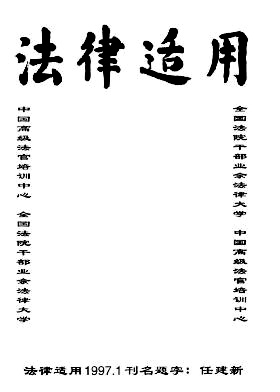 法律适用
中国高级法官培训中心 全国法院干部业余法律大学
全国法院干部业余法律大学 中国高级法官培训中心
法律适用1997.1刊名题字：任建新